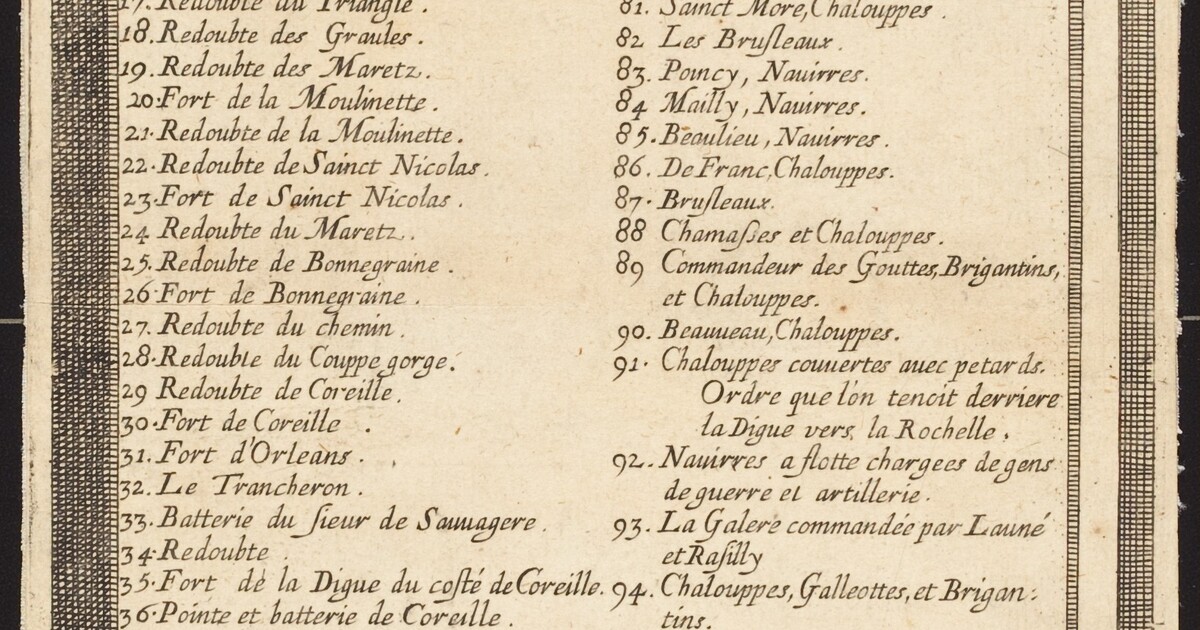 17. Redoubte du Triangle .
18. Redoubte des Graules .
19. Redoubte des Maretz .
20. Fort de la Moulinette .
21. Redoubte de la Moulinette .
22. Redoubte de Sainct Nicolas .
23. Fort de Sainct Nicolas .
24 Redoubte du Maretz .
25. Redoubte de Bonnegraine .
26. Fort de Bonnegraine .
27. Redoubte du chemin .
28. Redoubte du Couppe gorge .
29 Redoubte de Coreille .
30. Fort de Coreille .
31. Fort d'Orleans .
32. Le Trancheron .
33. Batterie du ſieur de Sauuagere .
34. Redoubte .
35. Fort de la Digue du coſté de Coreille .
36. Pointe et batterie de Coreille .
81. Sainct More, Chalouppes .
82 Les Bruſleaux .
83. Poincy, Nauirres .
84 Mailly, Nauirres .
85. Beaulieu, Nauirres .
86. De Franc, Chalouppes .
87. Bruſleaux .
88 Chamaſses et Chalouppes .
89 Commandeur des Gouttes, Brigantins,
et Chalouppes .
90. Beauueau, Chalouppes .
91. Chalouppes couuertes auec petards .
Ordre que l'on tenoit derriere
la Digue vers la Rochelle .
92. Nauirres a flotte chargees de gens
de guerre et artillerie .
93. La Galere commandée par Launé
et Raſilly
94. Chalouppes, Galleottes, et Brigan:
tins .